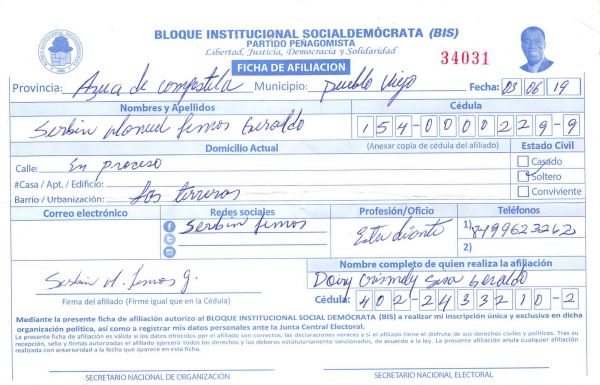 BLOQUE INSTITUCIONAL SOCIALDEMÓCRATA (BIS)
PARTIDO PEÑAGOMISTA
Libertad, Justicia, Democracia y Solidaridad
34031
FICHA DE AFILIACION
Provincia: Azua de compostela Municipio: Pueblo Viejo Fecha: 03 06 19
Nombres y Apellidos Cédula
Serbin Manuel Lemos Geraldo 154-0000229-9
Domicilio Actual (Anexar copia de cédula del afiliado) Estado Civil
Calle: En proceso Casado
#Casa / Apt. / Edificio: Soltero
Barrio / Urbanización: Los terreros Conviviente
Correo electrónico Redes sociales Profesión/Oficio Teléfonos
Serbin Lemos Estudiante 1) 8499623262
2)
Nombre completo de quien realiza la afiliación
Serbin M. Lemos g. Geraldo
Firma del afiliado (Firme igual que en la Cédula) Cédula: 402-2433210-2
Mediante la presente ficha de afiliación autorizo al BLOQUE INSTITUCIONAL SOCIAL DEMÓCRATA (BIS) a realizar mi inscripción única y exclusiva en dicha
organización política, así como a registrar mis datos personales ante la Junta Central Electoral.
La presente ficha de afiliación es válida y los datos ofrecidos por el afiliado son correctos, las declaraciones veraces y si el afiliado tiene el disfrute de sus derechos civiles y políticos. Tras su
recepción, sello y firmas autorizadas el afiliado ejercerá todos los derechos y los deberes estatutariamente sancionados, de acuerdo a la ley. La presente afiliación anula cualquier afiliación
realizada con anterioridad a la fecha que aparece en esta ficha.
SECRETARIO NACIONAL DE ORGANIZACIÓN SECRETARIO NACIONAL ELECTORAL